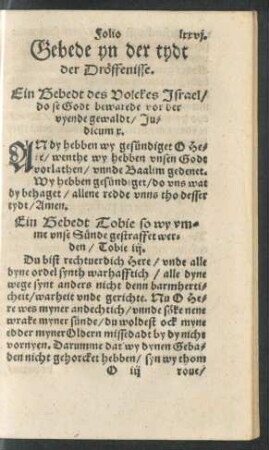 Folio lxxvj.
Gebede yn der tydt
der Dröffenisse.
Ein Bebedt des Volckes Israel/
do se Godt bewarede vor der
vyende gewaldt/ Ju-
dicum x.
AN dy hebben wy gesündiget O He-
re/ wenthe wy hebben vnsen Godt
vorlathen/ vnnde Baalim gedenet.
Wy hebben gesündiget/ do vns wat
dy behaget/ allene redde vnns tho desser
tydt/ Amen.
Ein Bebedt Tobie so wy vm-
me vnse Sünde gestraffet wer-
den/ Tobie iij.
Du bist rechtuerdich Here/ vnde alle
dyne ordel synth warhafftich/ alle dyne
wege synt anders nicht denn barmherti-
cheit/ warheit vnde gerichte. Nu O He-
re wes myner andechtich/ vnnde söke nene
wrake myner sünde/ du woldest ock myne
edder myner Oldern missedadt by dy nicht
vornyen. Darumme dat wy dynen Geba-
den nicht gehorcket hebben/ syn wy thom
O iij roue/